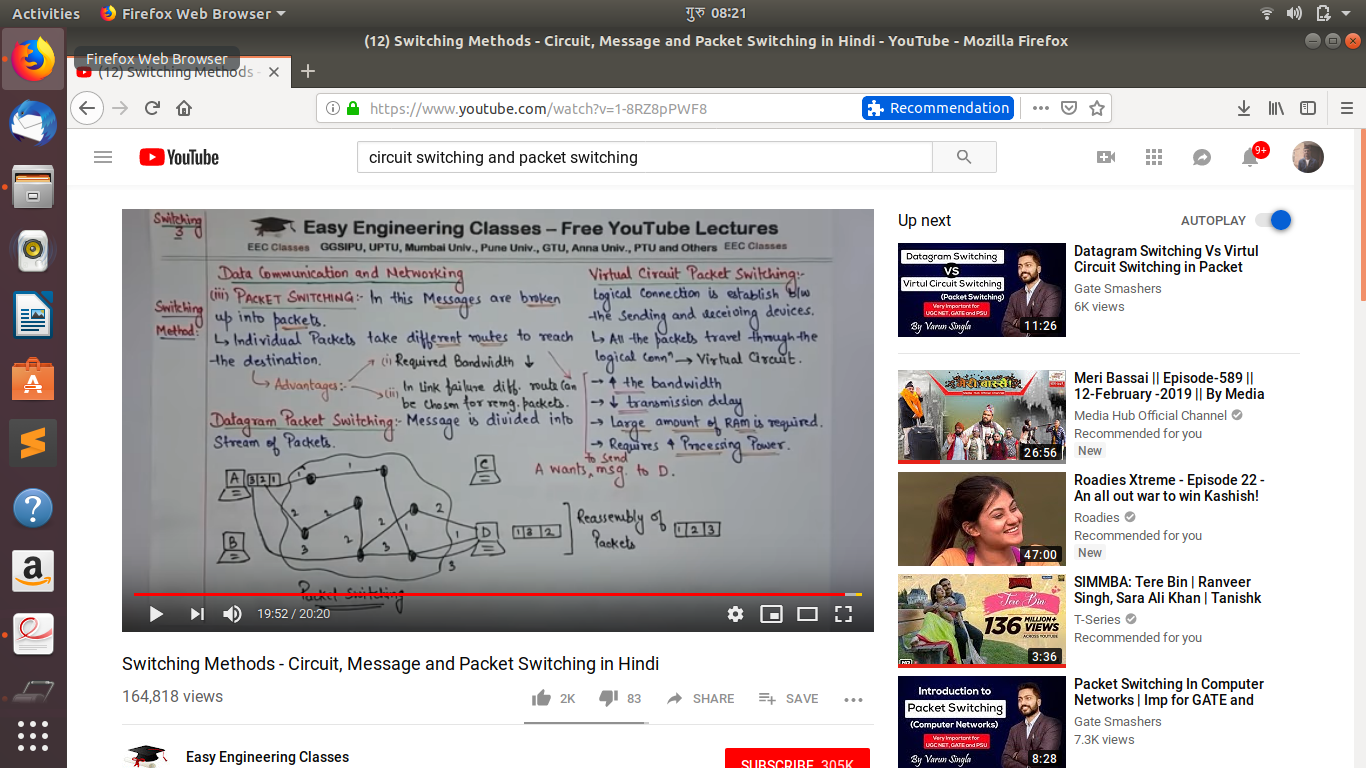 Activities
Firefox Web Browser
गुरु 08:21
(12) Switching Methods - Circuit, Message and Packet Switching in Hindi - YouTube - Mozilla Firefox
Firefox Web Browser
(12) Switching Methods -
https://www.youtube.com/watch?v=1-8RZ8pPWF8
Recommendation
YouTube
circuit switching and packet switching
9+
Switching
3
Easy Engineering Classes – Free YouTube Lectures
EEC Classes GGSIPU, UPTU, Mumbai Univ., Pune Univ., GTU, Anna Univ., PTU and Others EEC Classes
Data Communication and Networking
Switching
Method:
(iii) PACKET SWITCHING:- In this Messages are broken
up into packets.
↳ Individual Packets take different routes to reach
the destination.
(i) Required Bandwidth ↓
↳ Advantages:-
(ii) In link failure diff. route can
be chosen for remg. packets.
Datagram Packet Switching:- Message is divided into
Stream of Packets.
Virtual Circuit Packet Switching:-
Logical connection is establish b/w
the sending and deceiving devices.
↳ All the packets travel through the
logical connⁿ → Virtual Circuit.
→ ↑ the bandwidth
→ ↓ transmission delay
→ Large amount of RAM is required.
→ Requires ↑ Processing Power.
to send
A wants, msg. to D.
A 3 2 1
1
C
2
2
2
1
2
B
3
2
3
1
D
3
1 3 2
Reassembly of
Packets
1 2 3
Packet Switching
19:52 / 20:20
Switching Methods - Circuit, Message and Packet Switching in Hindi
164,818 views
2K
83
SHARE
SAVE
Easy Engineering Classes
SUBSCRIBE 305K
Up next
AUTOPLAY
Datagram Switching
VS
Virtul Circuit Switching
(Packet Switching)
Very Important for
UGC NET, GATE and PSU
By Varun Singla
11:26
Datagram Switching Vs Virtul
Circuit Switching in Packet
Gate Smashers
6K views
26:56
Meri Bassai || Episode-589 ||
12-February -2019 || By Media
Media Hub Official Channel
Recommended for you
New
47:00
Roadies Xtreme - Episode 22 -
An all out war to win Kashish!
Roadies
Recommended for you
New
Tere Bin
136 MILLION+
VIEWS
ACROSS YOUTUBE
3:36
SIMMBA: Tere Bin | Ranveer
Singh, Sara Ali Khan | Tanishk
T-Series
Recommended for you
Introduction to
Packet Switching
(Computer Networks)
Very Important for
UGC NET, GATE and PSU
By Varun Singla
8:28
Packet Switching In Computer
Networks | Imp for GATE and
Gate Smashers
7.3K views